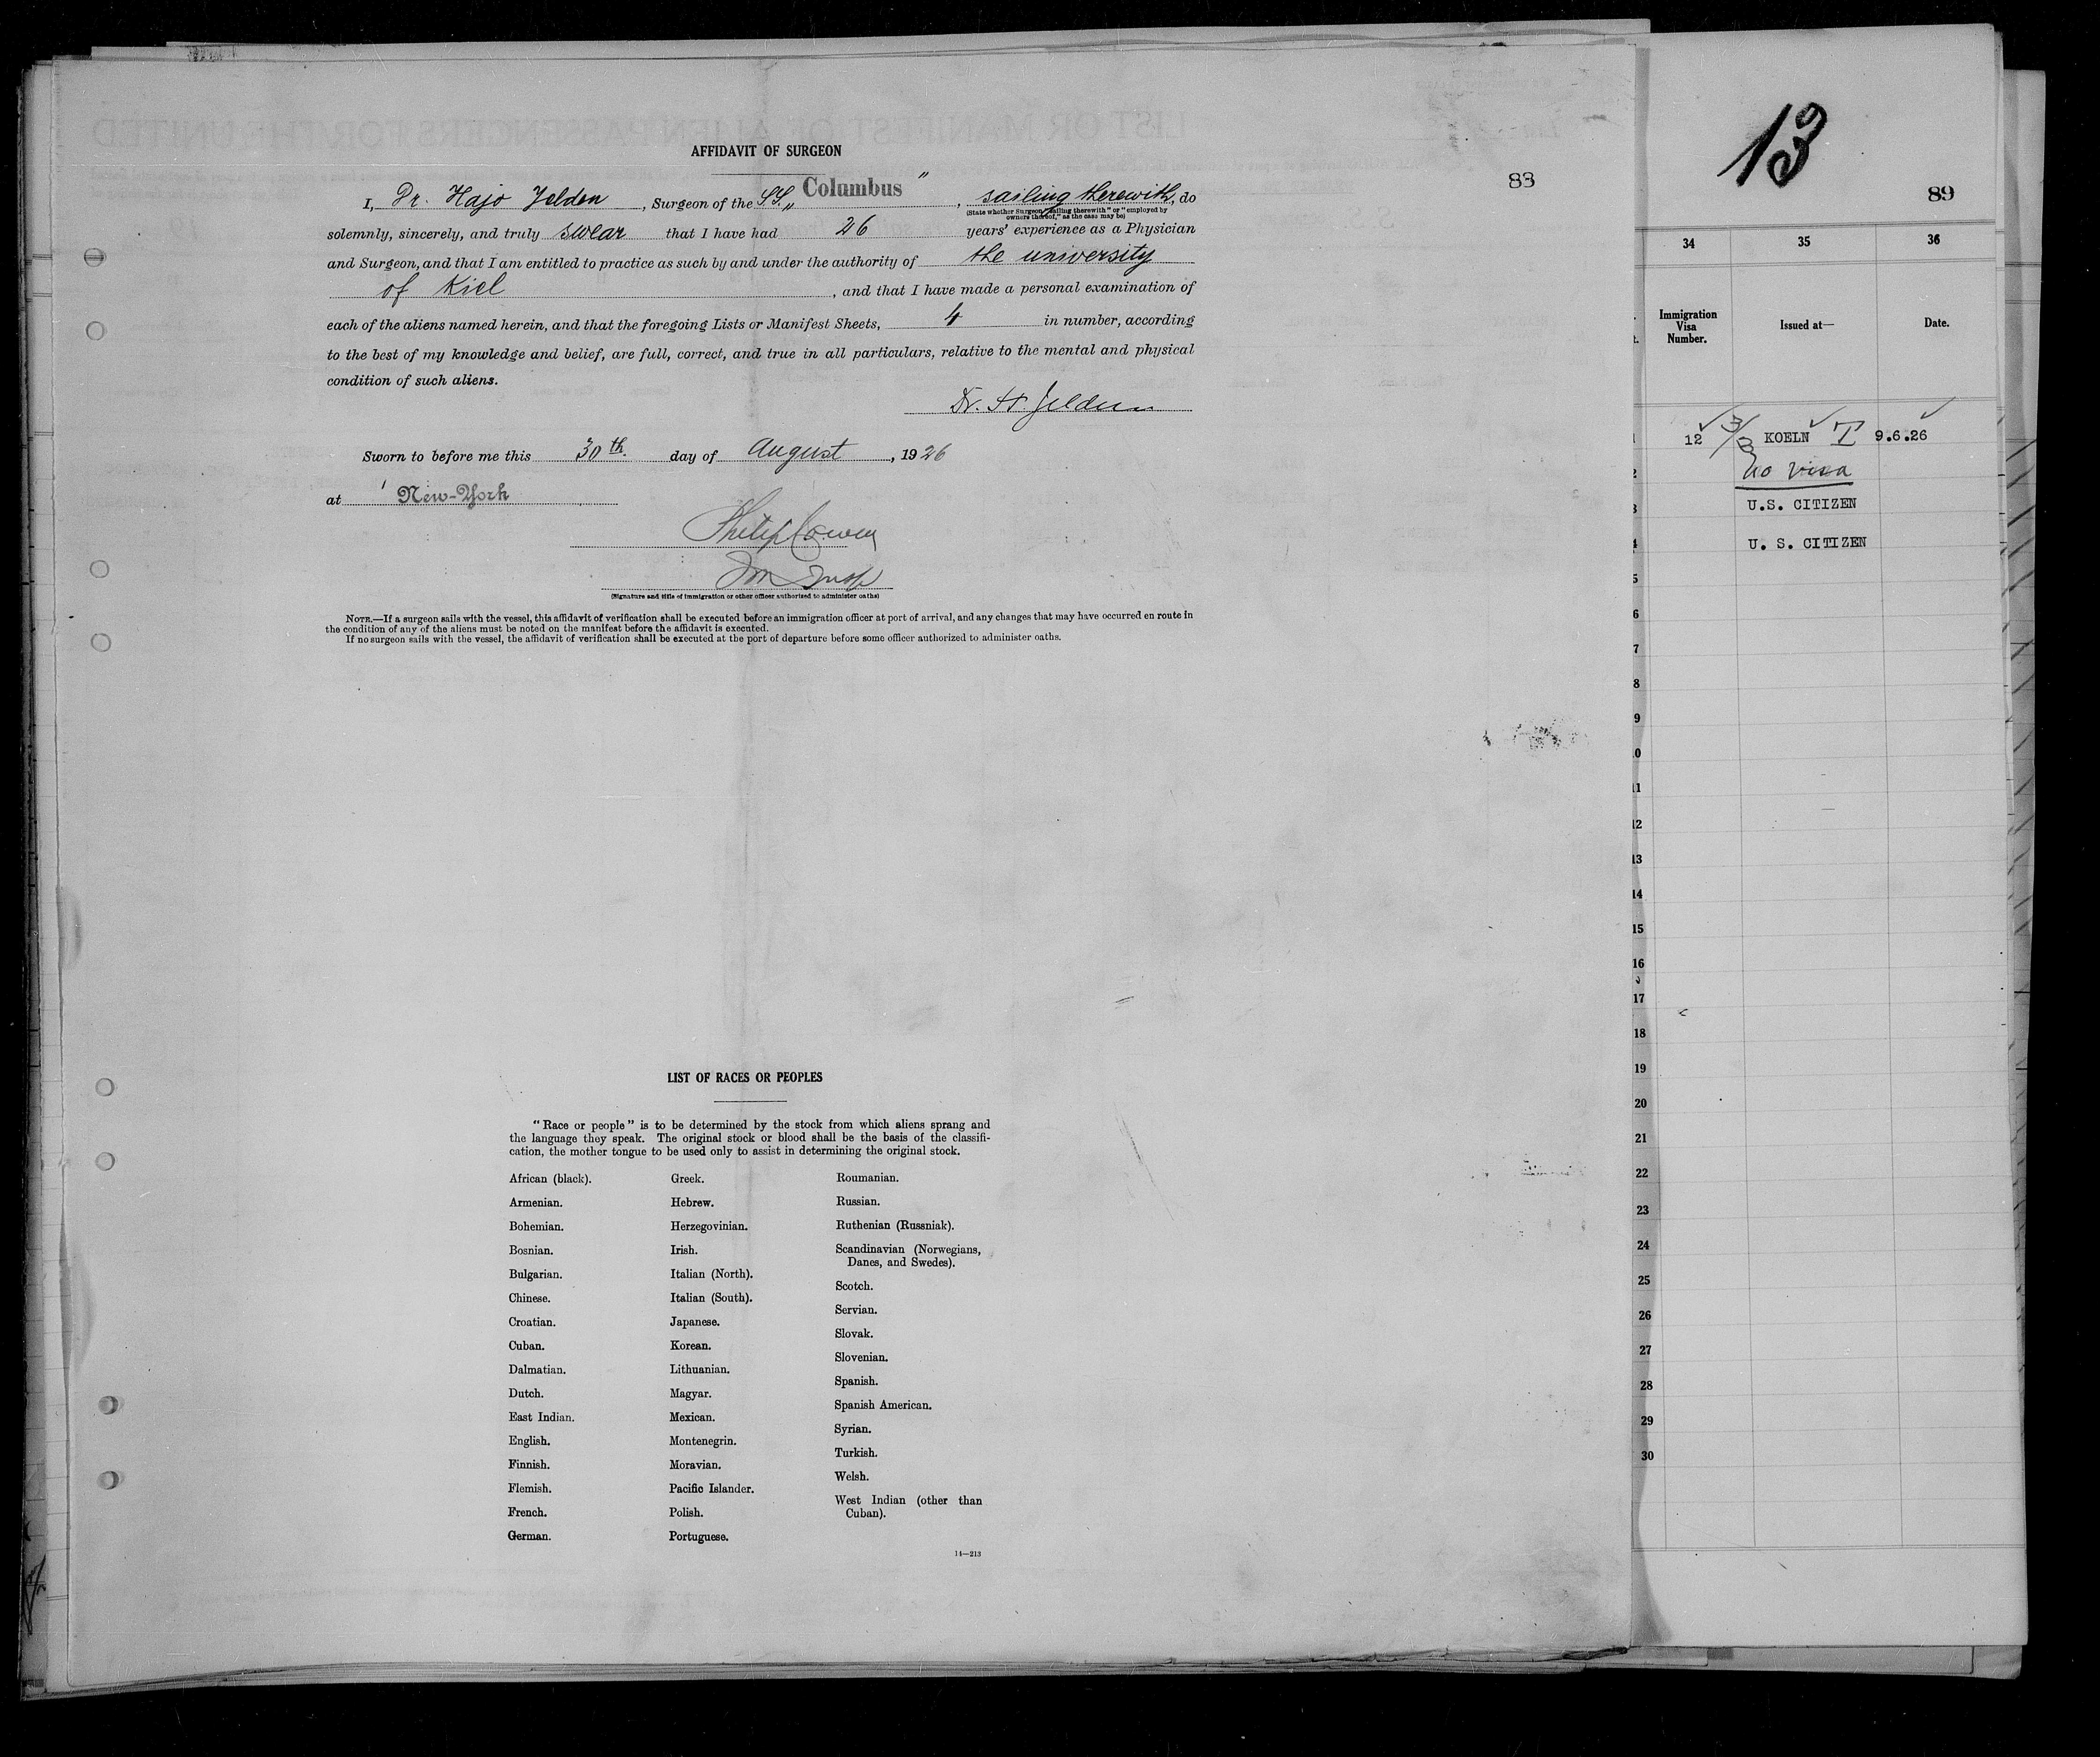 LIST OR MANIFEST OF ALIEN PASSENGERS FOR THE UNITED
AFFIDAVIT OF SURGEON
83
I, Dr. Hajo Jelden, Surgeon of the SS. „Columbus", sailing therewith, do
(State whether Surgeon "sailing therewith" or "employed by
owners thereof," as the case may be)
solemnly, sincerely, and truly swear that I have had 26 years' experience as a Physician
and Surgeon, and that I am entitled to practice as such by and under the authority of the university
of Kiel, and that I have made a personal examination of
each of the aliens named herein, and that the foregoing Lists or Manifest Sheets, 4 in number, according
to the best of my knowledge and belief, are full, correct, and true in all particulars, relative to the mental and physical
condition of such aliens.
Dr. H. Jelden
Sworn to before me this 30th. day of August, 1926
at New-York
Philip Cowen
Imm Insp
(Signature and title of immigration or other officer authorized to administer oaths)
NOTE.—If a surgeon sails with the vessel, this affidavit of verification shall be executed before an immigration officer at port of arrival, and any changes that may have occurred en route in
the condition of any of the aliens must be noted on the manifest before the affidavit is executed.
If no surgeon sails with the vessel, the affidavit of verification shall be executed at the port of departure before some officer authorized to administer oaths.
LIST OF RACES OR PEOPLES
"Race or people" is to be determined by the stock from which aliens sprang and
the language they speak. The original stock or blood shall be the basis of the classifi-
cation, the mother tongue to be used only to assist in determining the original stock.
African (black).
Armenian.
Bohemian.
Bosnian.
Bulgarian.
Chinese.
Croatian.
Cuban.
Dalmatian.
Dutch.
East Indian.
English.
Finnish.
Flemish.
French.
German.
Greek.
Hebrew.
Herzegovinian.
Irish.
Italian (North).
Italian (South).
Japanese.
Korean.
Lithuanian.
Magyar.
Mexican.
Montenegrin.
Moravian.
Pacific Islander.
Polish.
Portuguese.
Roumanian.
Russian.
Ruthenian (Russniak).
Scandinavian (Norwegians,
Danes, and Swedes).
Scotch.
Servian.
Slovak.
Slovenian.
Spanish.
Spanish American.
Syrian.
Turkish.
Welsh.
West Indian (other than
Cuban).
14—213
13
89
34 35 36
Immigration
Visa
Number.
Issued at—
Date.
12 3/3 KOELN T 9.6.26
No visa
U.S. CITIZEN
U. S. CITIZEN
5
6
7
8
9
10
11
12
13
14
15
16
17
18
19
20
21
22
23
24
25
26
27
28
29
30